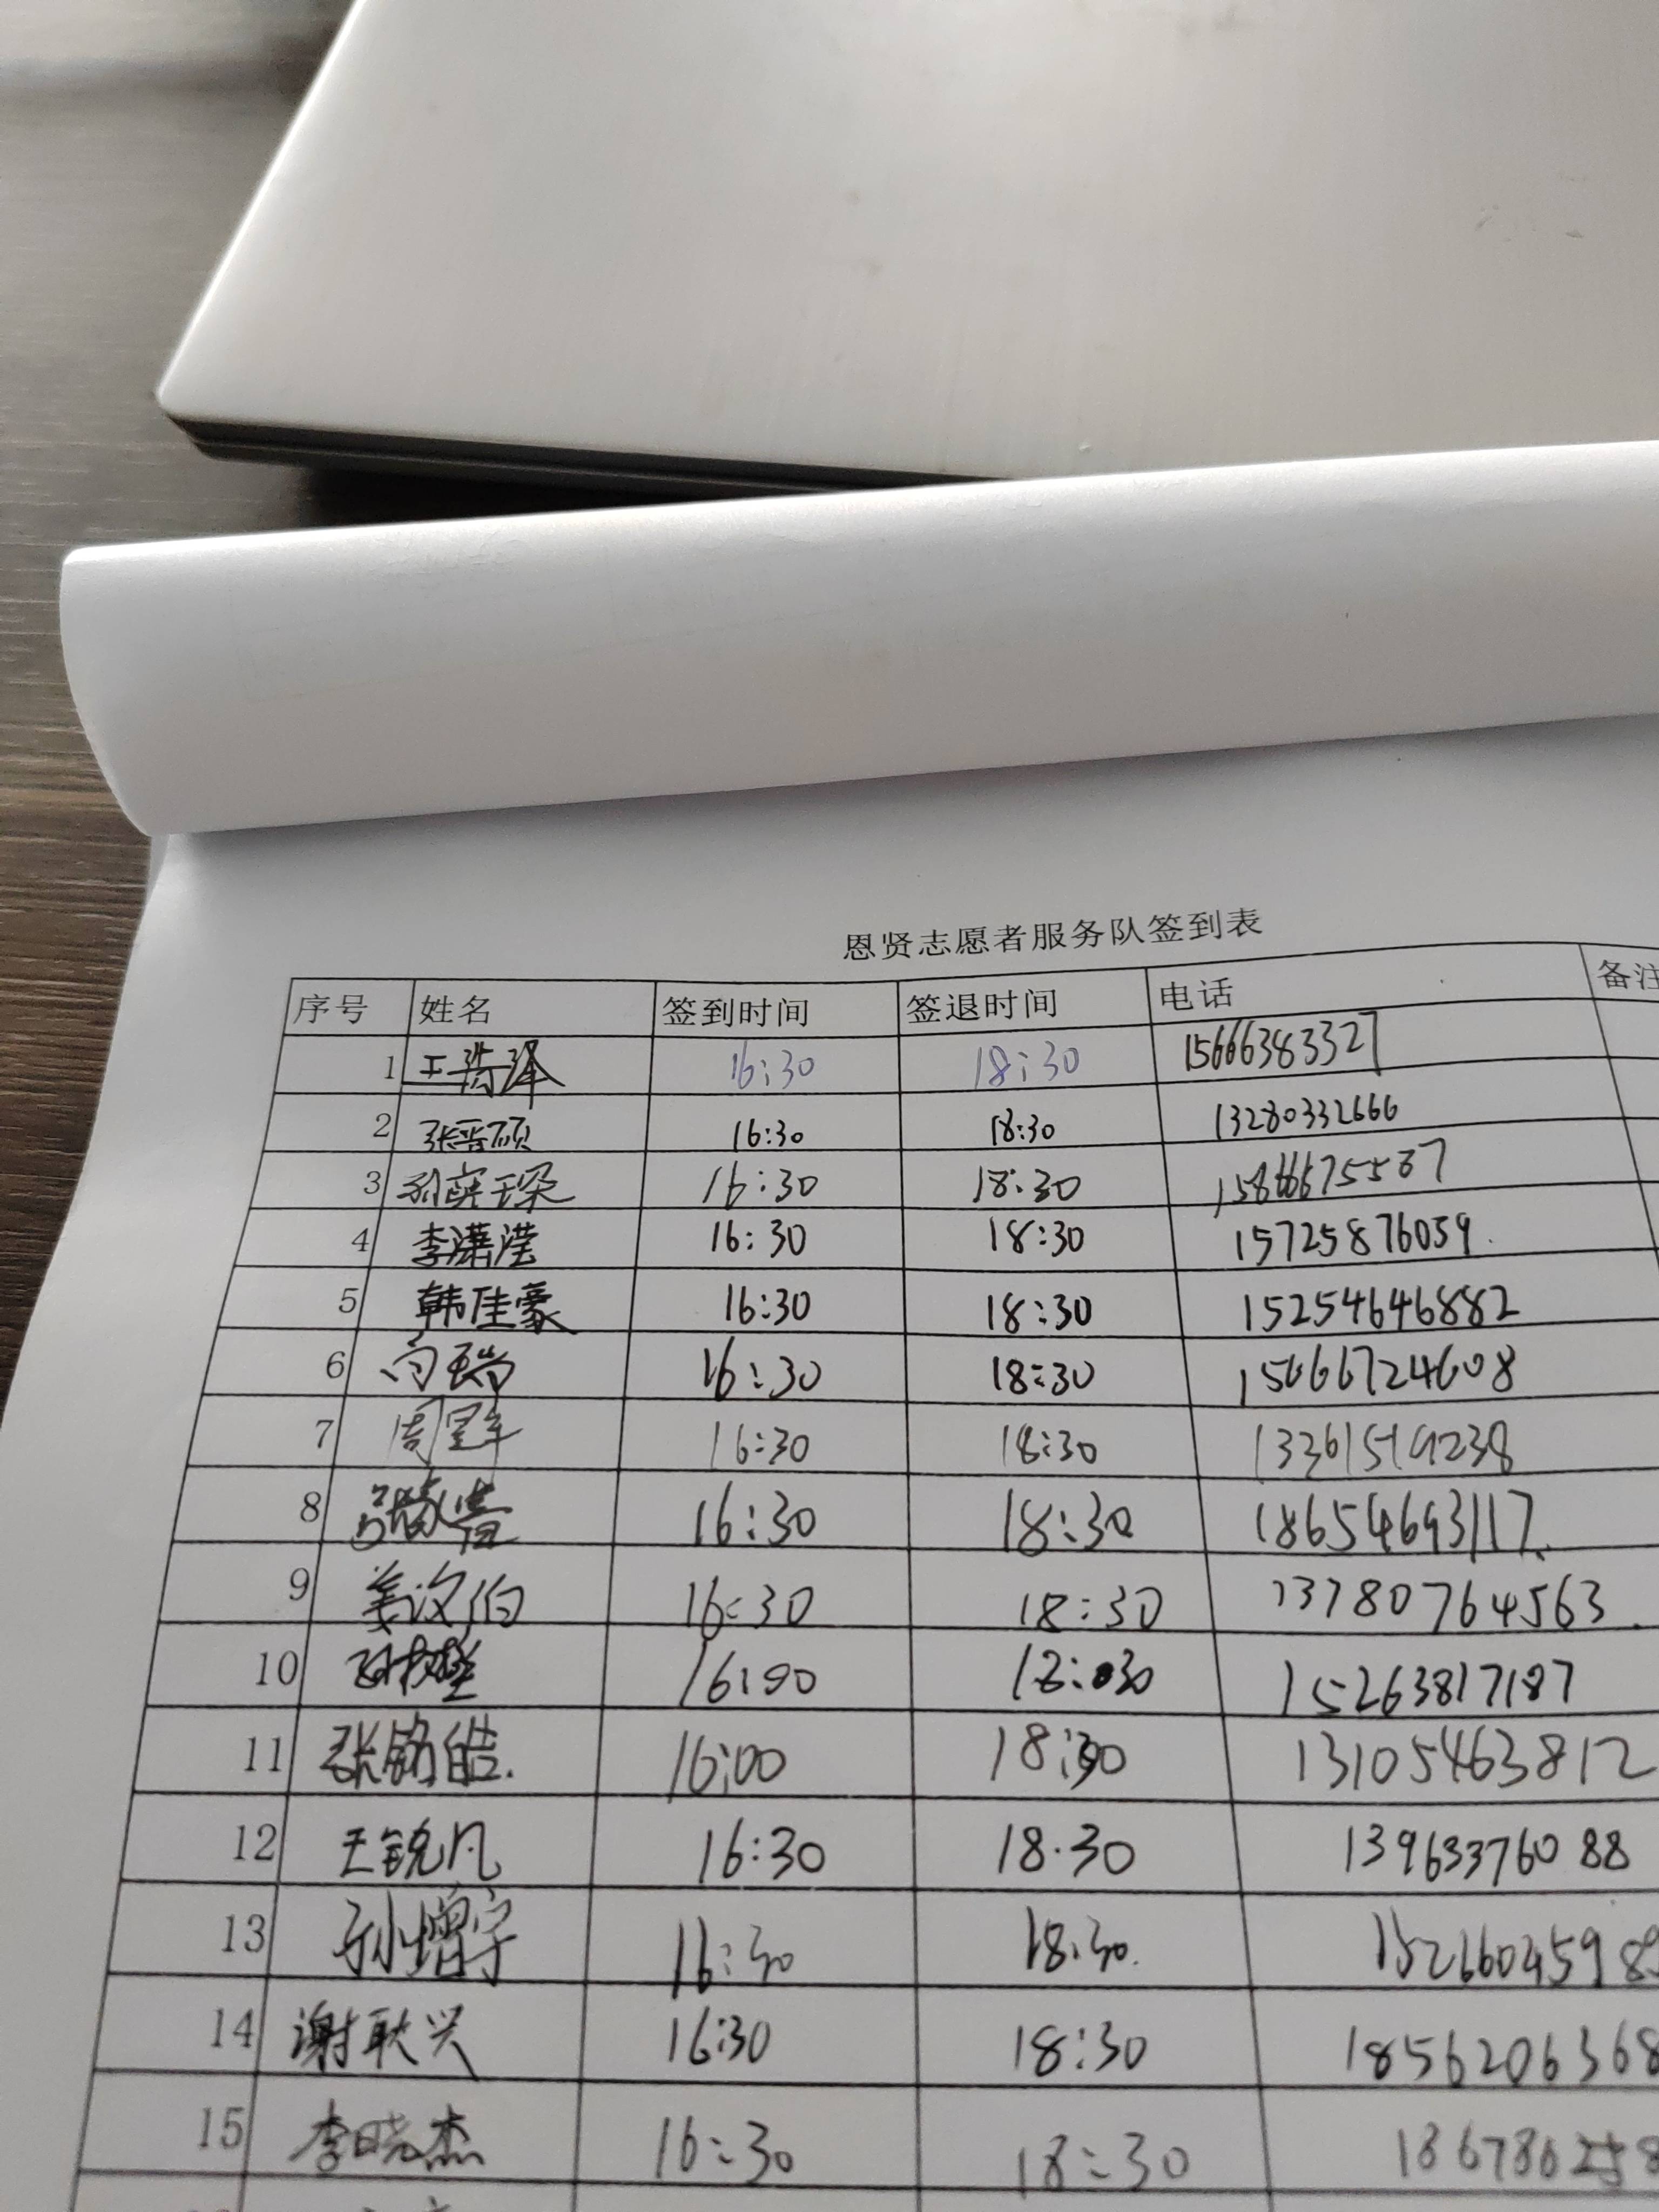 恩贤志愿者服务队签到表
序号 姓名 签到时间 签退时间 电话 备注
1 王浩泽 16:30 18:30 15666383327
2 张晋硕 16:30 18:30 13280332666
3 孙 16:30 18:30 15866675587
4 李潇滢 16:30 18:30 15725876059
5 韩佳豪 16:30 18:30 15254646882
6 向瑞 16:30 18:30 15666724608
7 周 16:30 18:30 13361519238
8 16:30 18:30 18654693117
9 姜汶伯 16:30 18:30 13780764563
10 18:30 15263817187
11 张铭皓. 16:00 18:30 13105463812
12 王锐凡 16:30 18.30 13963376088
13 孙增宇 16:30 18:30.
14 谢耿兴 16:30 18:30 1856206368
15 李晓杰 16:30 18:30